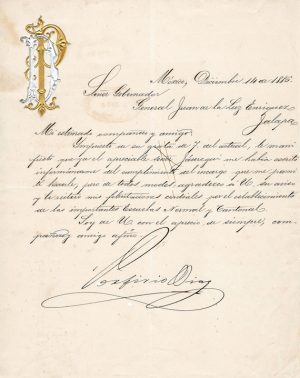 PD
México, Diciembre 14 de 1886.
Señor Gobernador
General Juan de la Luz Enriquez
Jalapa
Mi estimado compañero y amigo:
Impuesto de su grata de 7 del actual, le mani-
fiesto que ya el apreciable Jáuregui me había escrito
informándome del cumplimiento del encargo que me permi-
tí hacerle, pero de todos modos agradezco á U. su aviso
y le reitero mis felicitaciones cordiales por el establecimiento
de las importantes Escuelas Normal y Cantonal.
Soy de U. con el aprecio de siempre, com-
pañero y amigo afmo.
Porfirio Diaz